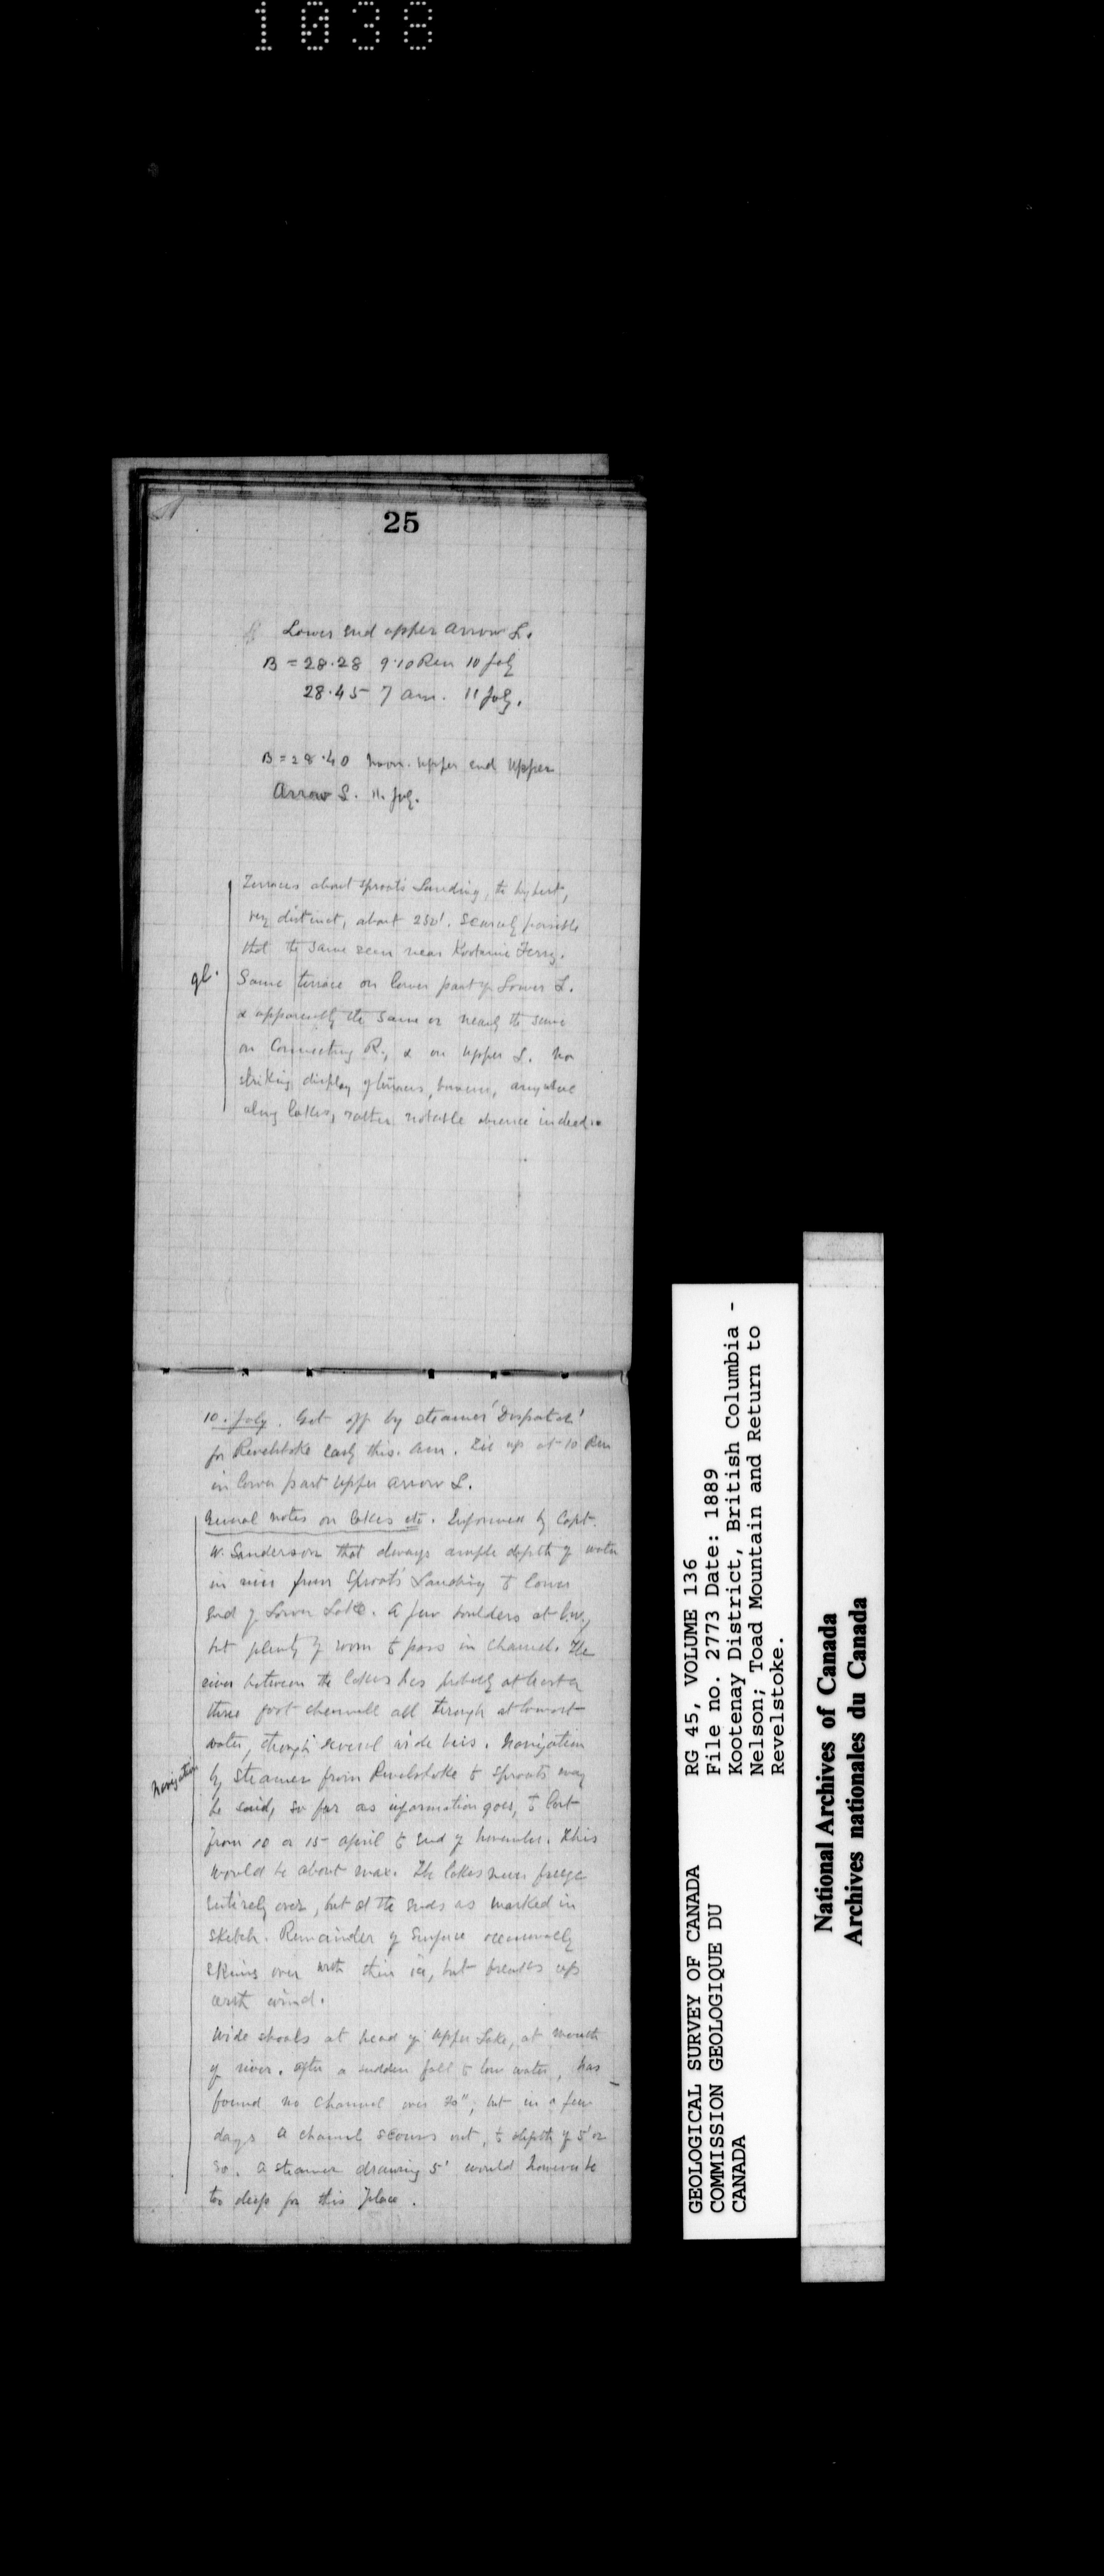 1038
25
Lower end upper Arrow L.
B = 28.28 9.10 Pm 10 July
28.45 7 am. 11 July.
B = 28.40 Noon. upper end Upper
Arrow L. 11. July.
Terraces about Sproats Landing, the highest,
very distinct, about 250'. Scarcely possible
that the same seen near Kootanie Ferry.
gl.
Same terrace on lower part of Lower L.
& apparently the same or nearly the same
on Connecting R., & on Upper L. No
striking display of terraces, however, anywhere
along lakes, rather notable absence indeed.
10. July. Got off by steamer 'Dispatch'
for Revelstoke early this am. Tie up at 10 Pm
in lower part Upper Arrow L.
General notes on lakes etc. Informed by Capt.
W. Sanderson that always ample depth of water
in river from Sproat's Landing to lower
end of Lower Lake. A few boulders at l.w.,
but plenty of room to pass in channel. The
river between the lakes has probably at least a
three foot channel all through at lowest
water, though several wide
Navigation
Navigation
by steamer from Revelstoke to Sproats may
be said, so far as information goes, to last
from 10 or 15 April to end of November. This
would be about max. The lakes never freeze
entirely over, but at the ends as marked in
sketch. Remainder of surface occasionally
skims over with thin ice, but breaks up
with wind.
Wide shoals at head of Upper Lake, at mouth
of river. After a sudden fall to low water, has
found no channel over 20", but in a few
days a channel scours out, to depth of 5' or
so. A steamer drawing 5' would however be
too deep for this place.
GEOLOGICAL SURVEY OF CANADA
COMMISSION GEOLOGIQUE DU
CANADA
RG 45, VOLUME 136
File no. 2773 Date: 1889
Kootenay District, British Columbia -
Nelson; Toad Mountain and Return to
Revelstoke.
National Archives of Canada
Archives nationales du Canada